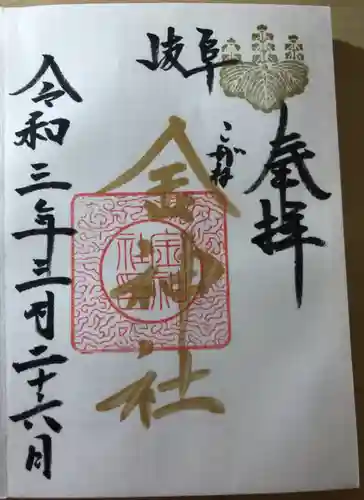 奉拝
岐阜
こがね
金神社
金神
社印
令和三年三月二十六日